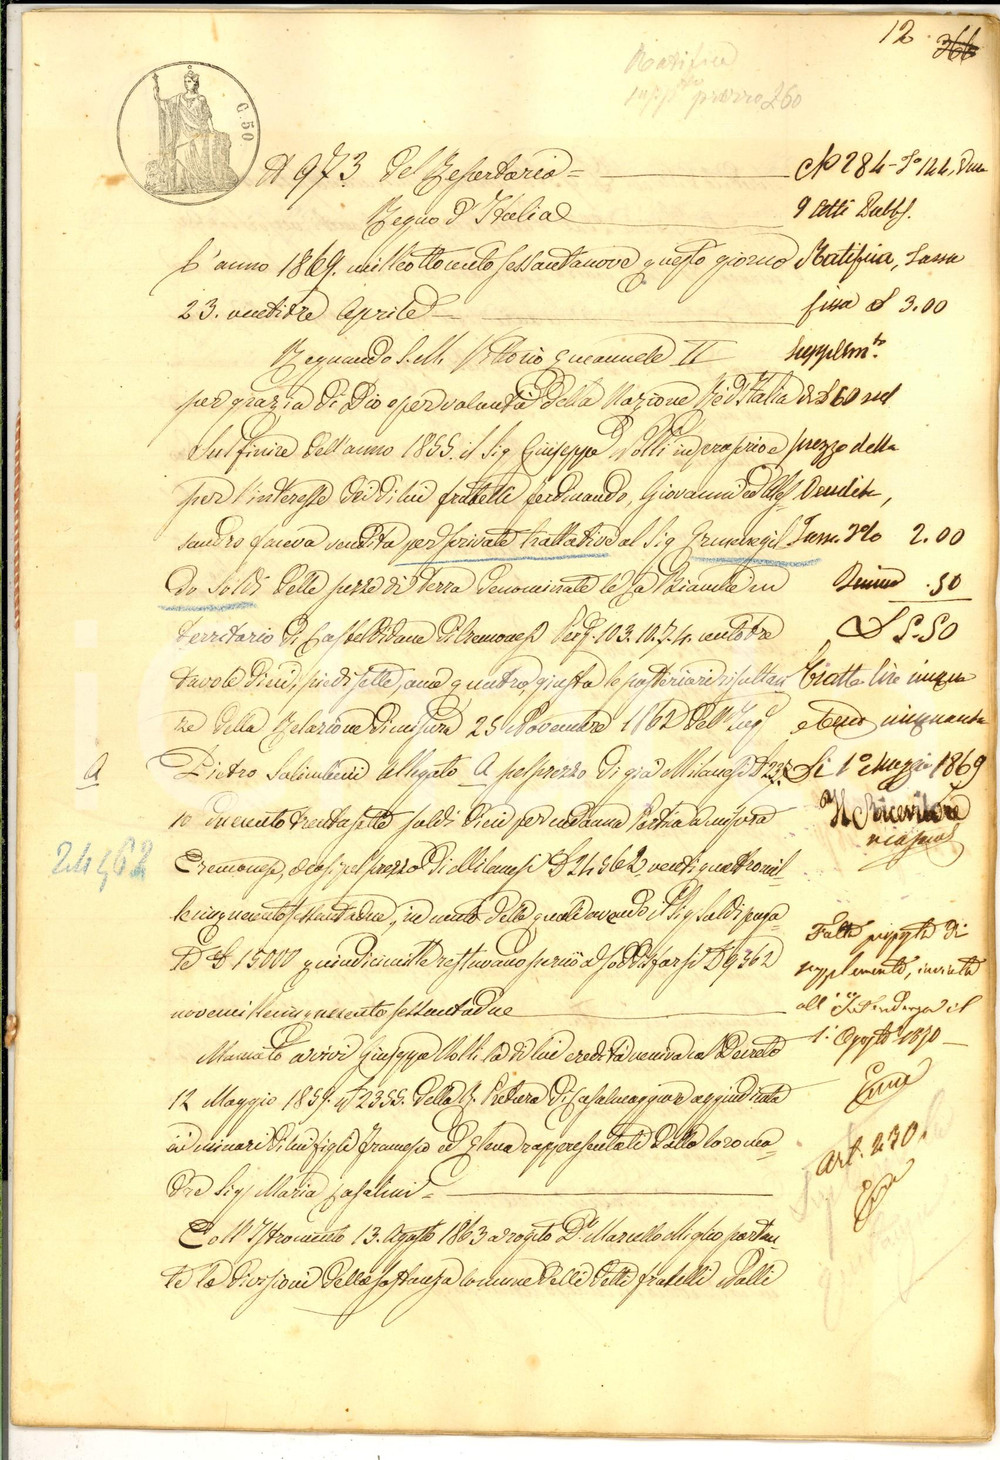 12. 366
Ratifica
supp.to prezzo 260
C. 50
N 973 del Repertorio =
Regno d'Italia
L'anno 1869. milleottocentosessantanove questo giorno
23. ventitre Aprile
Regnando S. M. Vittorio Emanuele II
per grazia di Dio e per volontà della Nazione Re d'Italia
Sul finire dell'anno 1855. il Sig Giuseppe Volli in proprio e
per l'interesse dei di lui fratelli Ferdinando, Giovanni ed Ales
sandro faceva vendita per private trattative al Sig Ermenegil
do Soldi delle pezze di terra denominate le in
territorio di Casteldidone Cremonese Pert. 103. 10. 7. 4. centotre
tavole dieci, piedi sette, once quattro, giusta le posteriori risultan
ze della Relazione di misura 25 Novembre 1862 dell'Ing
A
Pietro Salimbeni Allegato A pel prezzo di già Milanesi £ 237.
10 duecento trentasette soldi dieci per cadauna Pertica a misura
24562
Cremonese, e così pel prezzo di Milanesi £ 24562, ventiquattromil
lecinquecentosessantadue, in conto delle quali avendo il Sig Soldi paga
te £ 15000 quindicimille restavano perciò a soddisfarsi £ 9562
novemillecinquecentosessantadue
Mancato ai vivi Giuseppe Volli la di lui eredità veniva col Decreto
12 Maggio 1859. N 2355. della R. Pretura di Casalmaggiore aggiudicata
ai minori di lui figli Francesco ed Elena rappresentati dalla loro ma
dre Sig Maria Casalini =
Coll'Istromento 13. Agosto 1863 a rogito Dr. Marcello Miglio portan
te le divisioni della sostanza comune delli detti fratelli Volli
N 284 - Fo 144, Vol.
9 Atti Pubbl.
Ratifica, Tassa
fissa £ 3.00
Supplem.to
di £ 60 sul
prezzo della
Vendita,
Tassa 2.00
Decimo .50
£ 5.50
Esatte lire cinque
e Cent. cinquanta
Li 1° Maggio 1869
Il Ricevitore
Fatta proposta di
supplemento, inviata
all' Intendenza il
1° Agosto 1870
Art. 230.